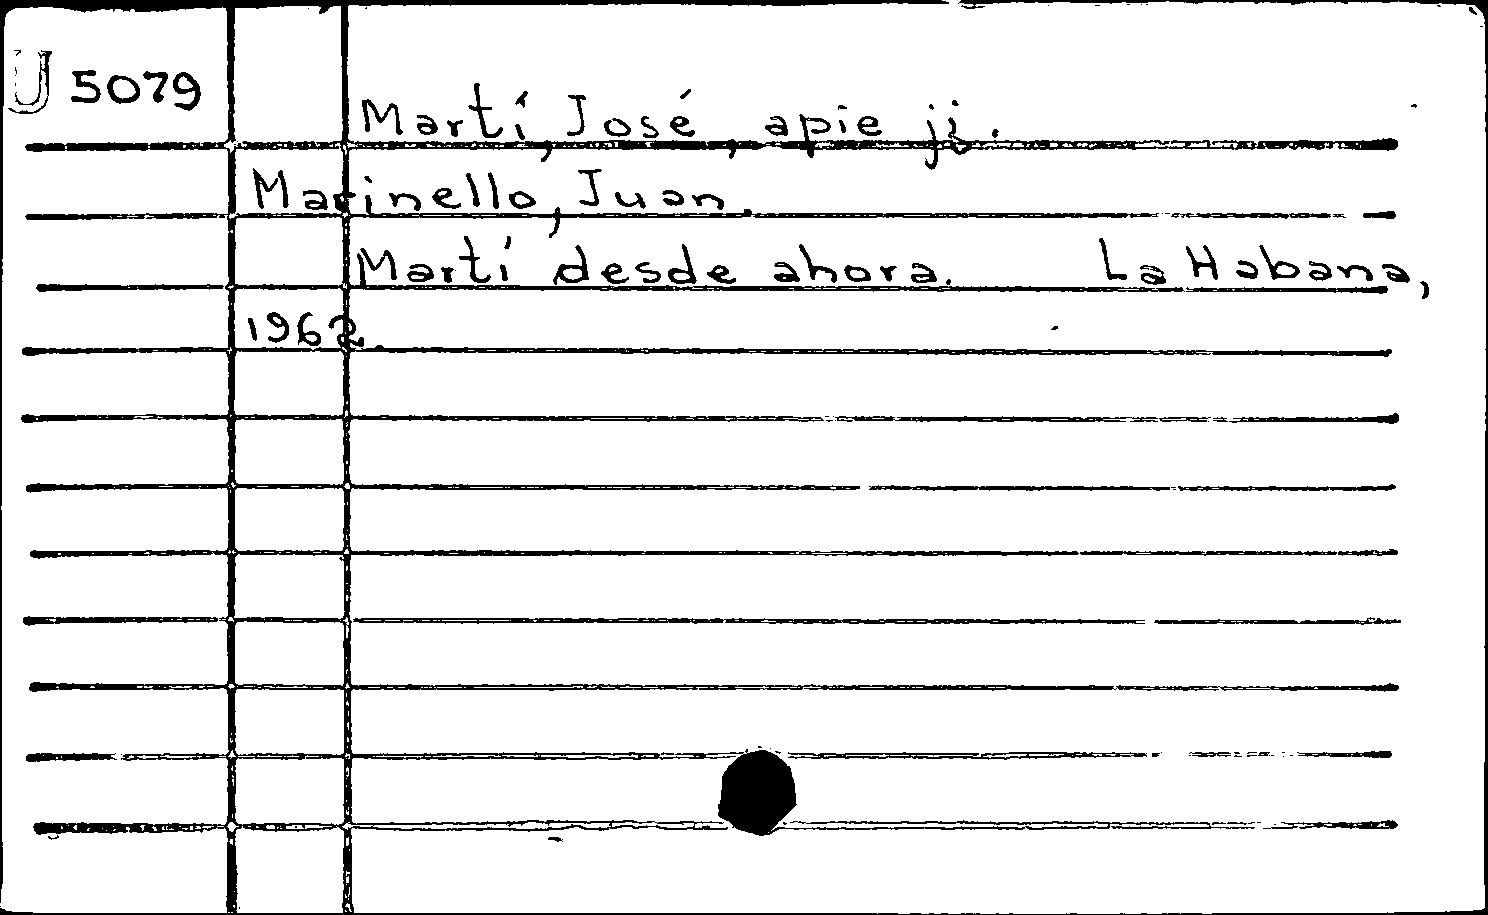 U 5079
Martí, José, apie jį.
Marinello, Juan.
Martí desde ahora. La Habana,
1962.